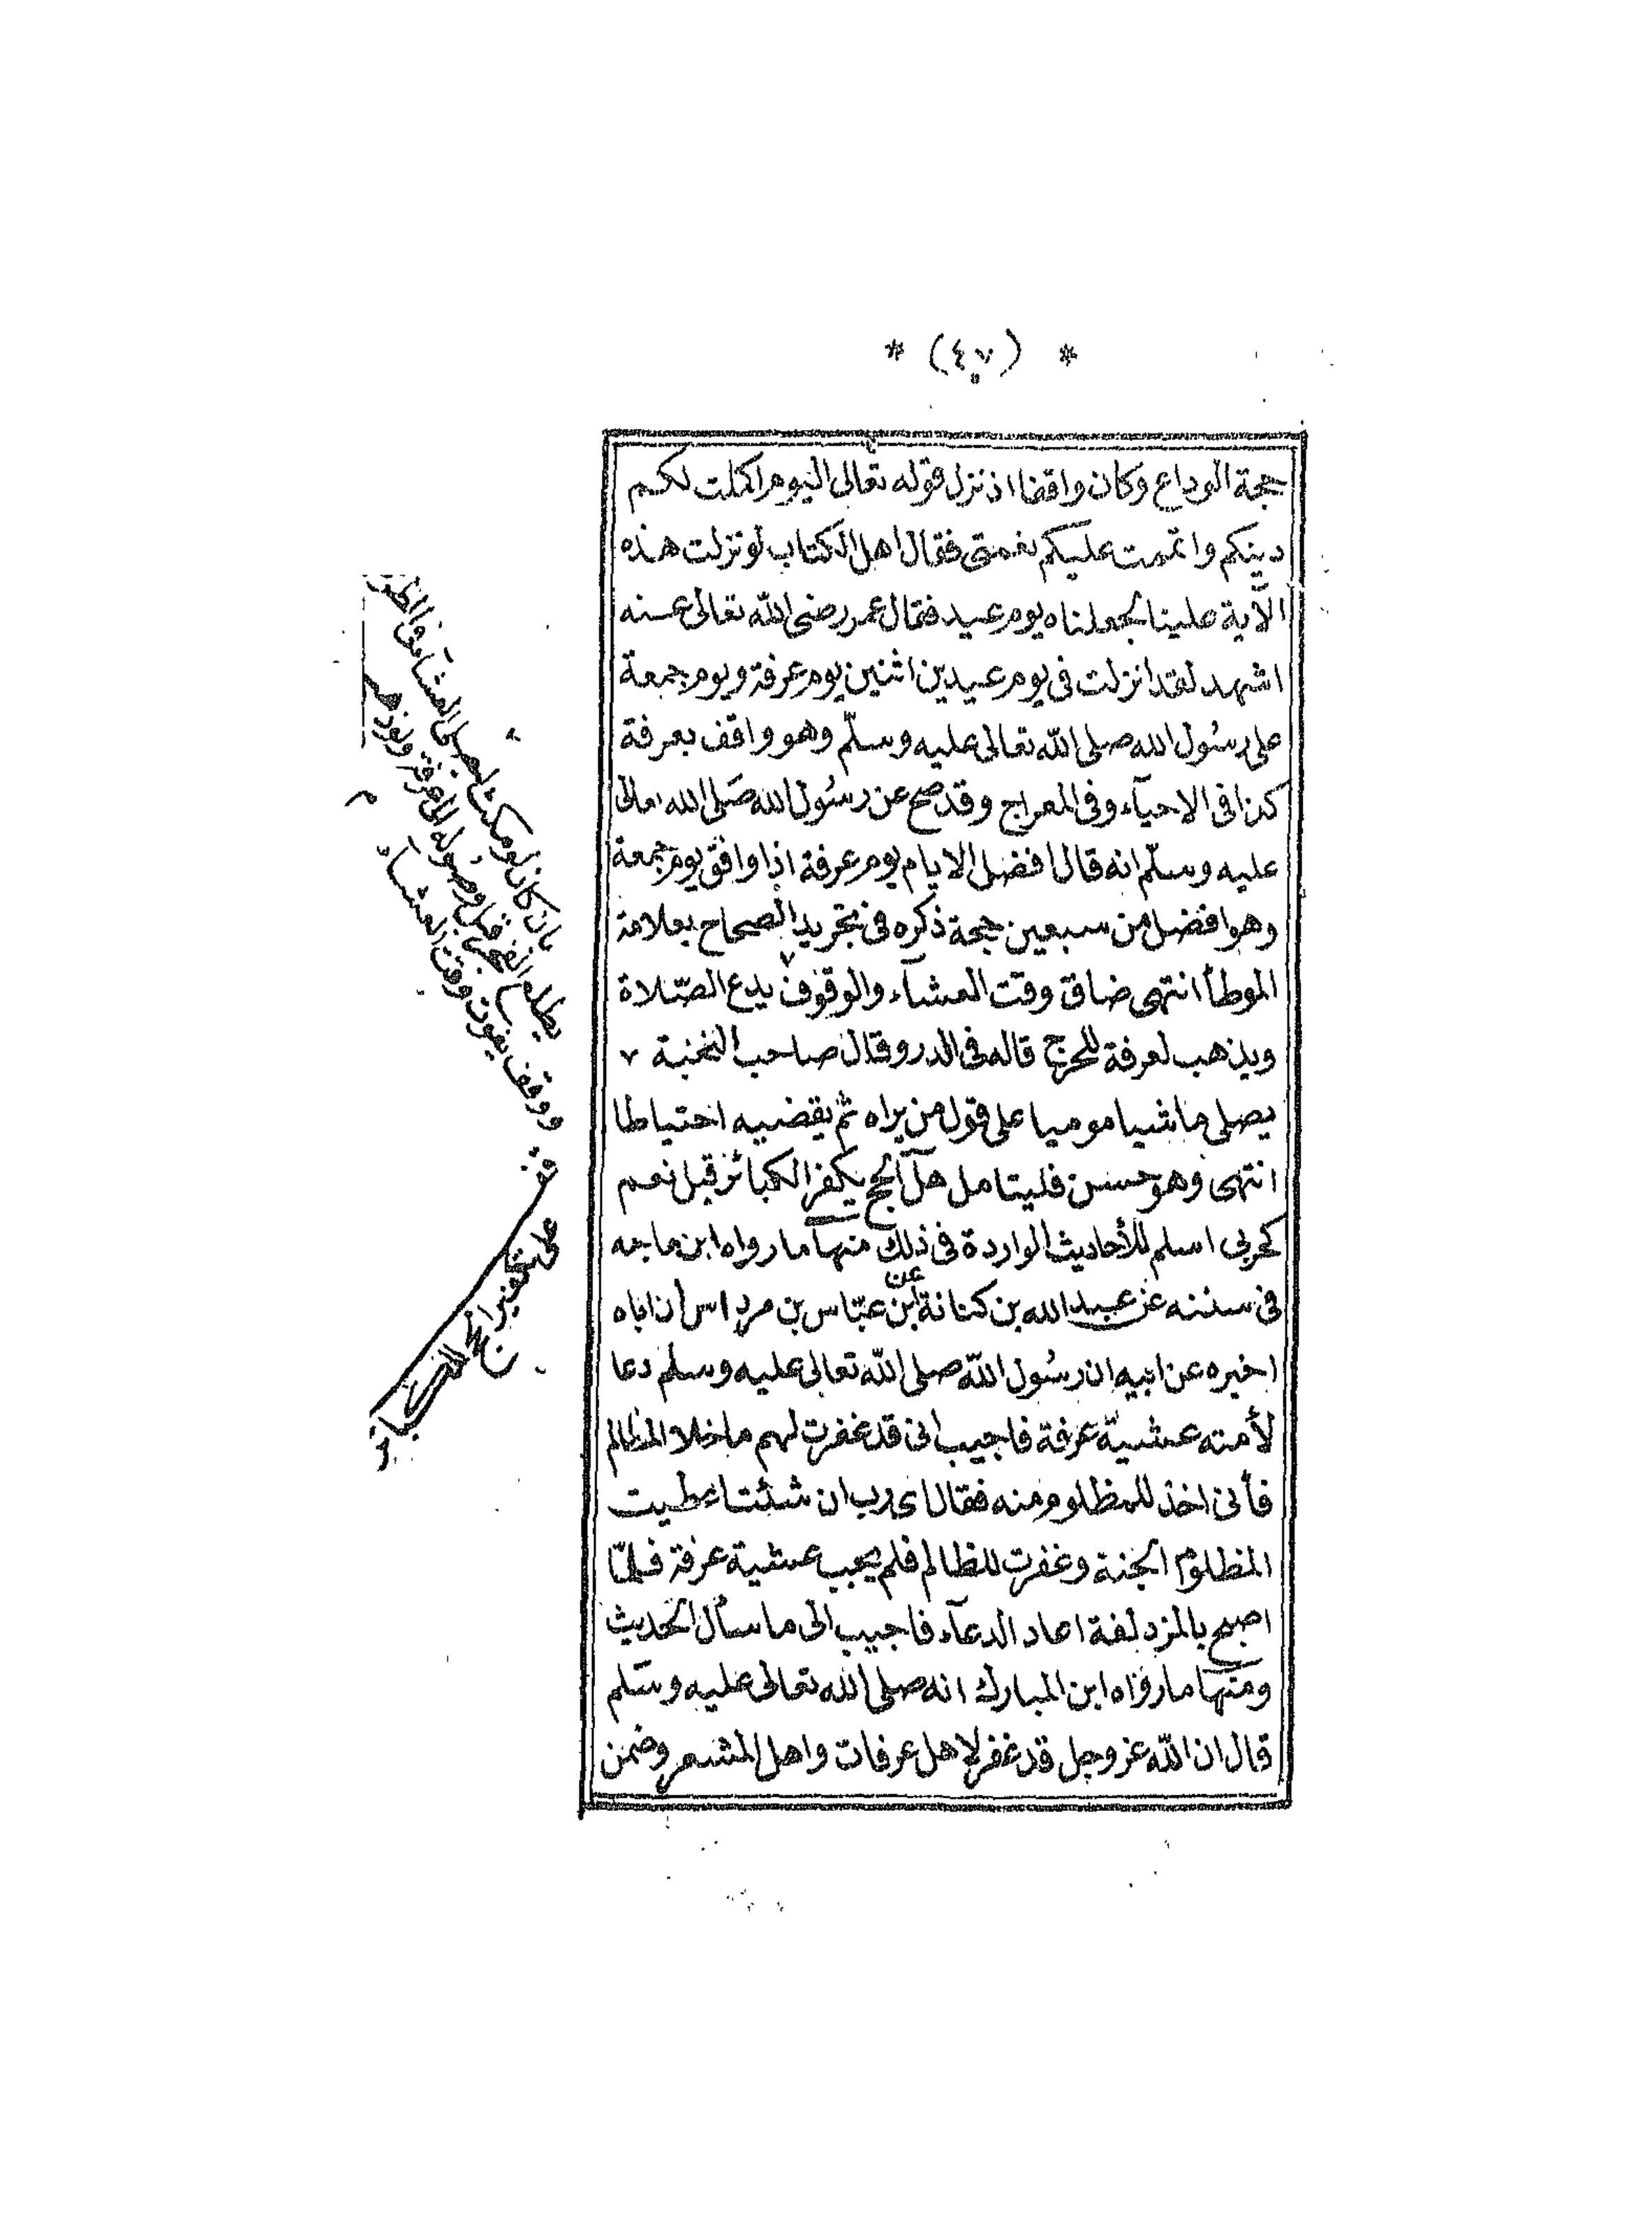 * (٤٧) *
حجة الوداع وكان واقفا اذ نزل قوله تعالى اليوم اكملت لكم
دينكم واتممت عليكم نعمتى فقال اهل الكتاب لو نزلت هذه
الآية علينا لجعلناه يوم عيد فقال عمر رضى الله تعالى عنه
اشهد لقد انزلت فى يوم عيدين اثنين يوم عرفة ويوم جمعة
على رسول الله صلى الله تعالى عليه وسلم وهو واقف بعرفة
كذا فى الاحياء وفى المعراج وقد صح عن رسول الله صلى الله تعالى
عليه وسلم انه قال افضل الايام يوم عرفة اذا وافق يوم جمعة
وهو افضل من سبعين حجة ذكره فى تجريد الصحاح بعلامة
الموطأ انتهى ضاق وقت العشاء والوقوف ٧ يدع الصلاة
ويذهب لعرفة للحرج قاله فى الدر وقال صاحب النخبة ٧
يصلى ماشيا موميا على قول من يراه ثم يقضيه احتياطا
انتهى وهو حسن فليتامل هل الحج يكفر الكبائر قيل نعم
كحربى اسلم للأحاديث الواردة فى ذلك منها ما رواه ابن ماجه
فى سننه عن عبد الله بن كنانة عن ابن عباس بن مرداس ان اباه
اخبره عن ابيه ان رسول الله صلى الله تعالى عليه وسلم دعا
لأمته عشية عرفة فاجيب انى قد غفرت لهم ما خلا المظالم
فأنى اخذ للمظلوم منه فقال اى رب ان شئت اعطيت
المظلوم الجنة وغفرت للظالم فلم يجب عشية عرفة فلما
اصبح بالمزدلفة اعاد الدعاء فاجيب الى ما سأل الحديث
ومنها ما رواه ابن المبارك انه صلى الله تعالى عليه وسلم
قال ان الله عز وجل قد غفر لاهل عرفات واهل المشعر وضمن
بان كان لو مكث ليصلى العشاء
يطلع الفجر قبل وصوله الى عرفة ولو ذهب
ووقف يفوت وقت العشاء